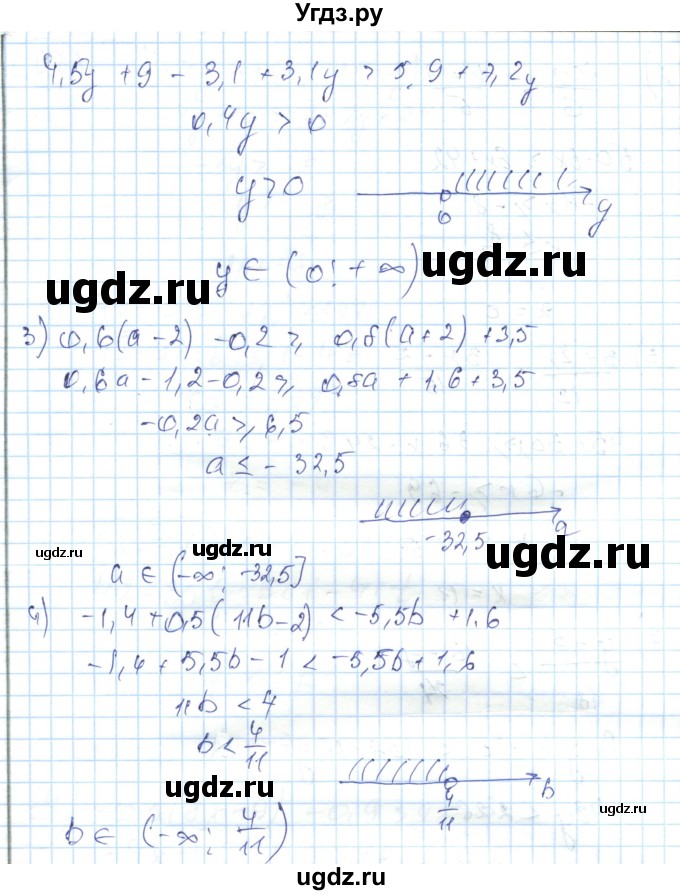 Угдз.ру
4,5y + 9 - 3,1 + 3,1y > 5,9 + 7,2y
0,4y > 0
y > 0
0
y
y ∈ (0; +∞)
ugdz.ru
ugdz.ru
3) 0,6(a-2) - 0,2 ⩾ 0,8(a+2) + 3,5
0,6a - 1,2 - 0,2 ⩾ 0,8a + 1,6 + 3,5
-0,2a ⩾ 6,5
a ≤ -32,5
-32,5
a
ugdz.ru
ugdz.ru
ugdz.ru
a ∈ (-∞; -32,5]
4) -1,4 + 0,5(11b-2) < -5,5b + 1,6
-1,4 + 5,5b - 1 < -5,5b + 1,6
11b < 4
b < 4/11
4/11
b
ugdz.ru
ugdz.ru
b ∈ (-∞; 4/11)
ugdz.ru
ugdz.ru